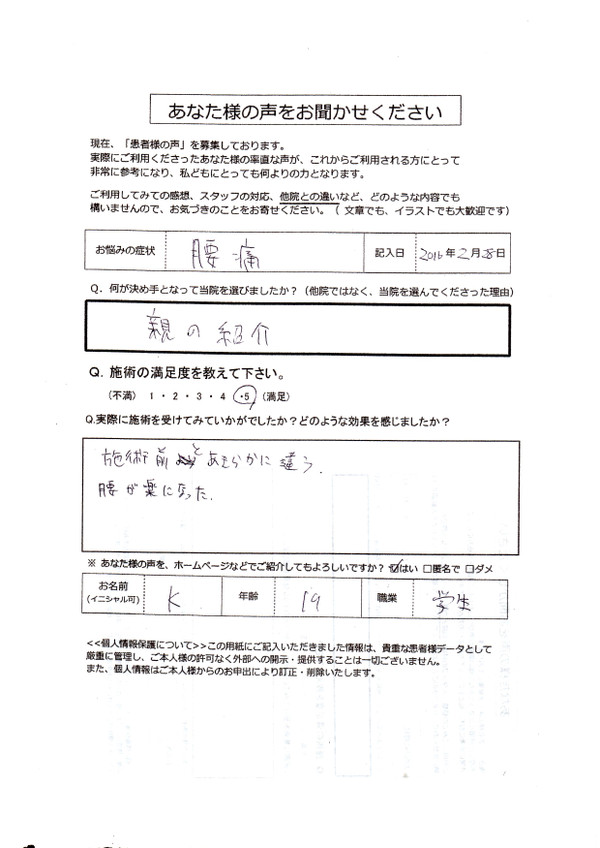 あなた様の声をお聞かせください
現在、「患者様の声」を募集しております。
実際にご利用くださったあなた様の率直な声が、これからご利用される方にとって
非常に参考になり、私どもにとっても何よりの力となります。
ご利用してみての感想、スタッフの対応、他院との違いなど、どのような内容でも
構いませんので、お気づきのことをお寄せください。（ 文章でも、イラストでも大歓迎です）
お悩みの症状 腰痛 記入日 2016年2月28日
Q．何が決め手となって当院を選びましたか？（他院ではなく、当院を選んでくださった理由）
親の紹介
Q．施術の満足度を教えて下さい。
（不満） 1 ・ 2 ・ 3 ・ 4 ・5 （満足）
Q.実際に施術を受けてみていかがでしたか？どのような効果を感じましたか？
施術前とあきらかに違う.
腰が楽になった.
※ あなた様の声を、ホームページなどでご紹介してもよろしいですか？ ☑はい □匿名で □ダメ
お名前 K 年齢 19 職業 学生
(イニシャル可)
<<個人情報保護について>>この用紙にご記入いただきました情報は、貴重な患者様データとして
厳重に管理し、ご本人様の許可なく外部への開示・提供することは一切ございません。
また、個人情報はご本人様からのお申出により訂正・削除いたします。